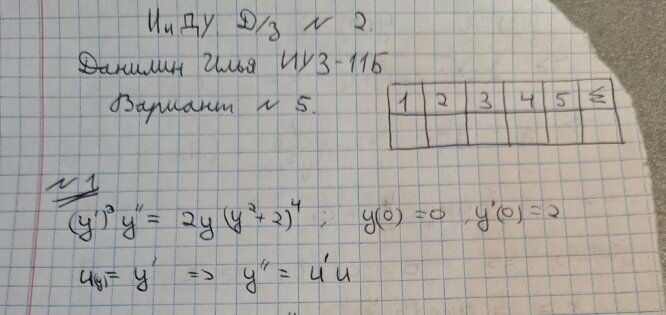 ИиДУ Д/з № 2.
Данилин Илья ИУ3-11Б
Вариант № 5.
1 2 3 4 5 Σ
№1
(y')³ y'' = 2y (y²+2)⁴ ; y(0) = 0, y'(0) = 2
u(y) = y' => y'' = u'u